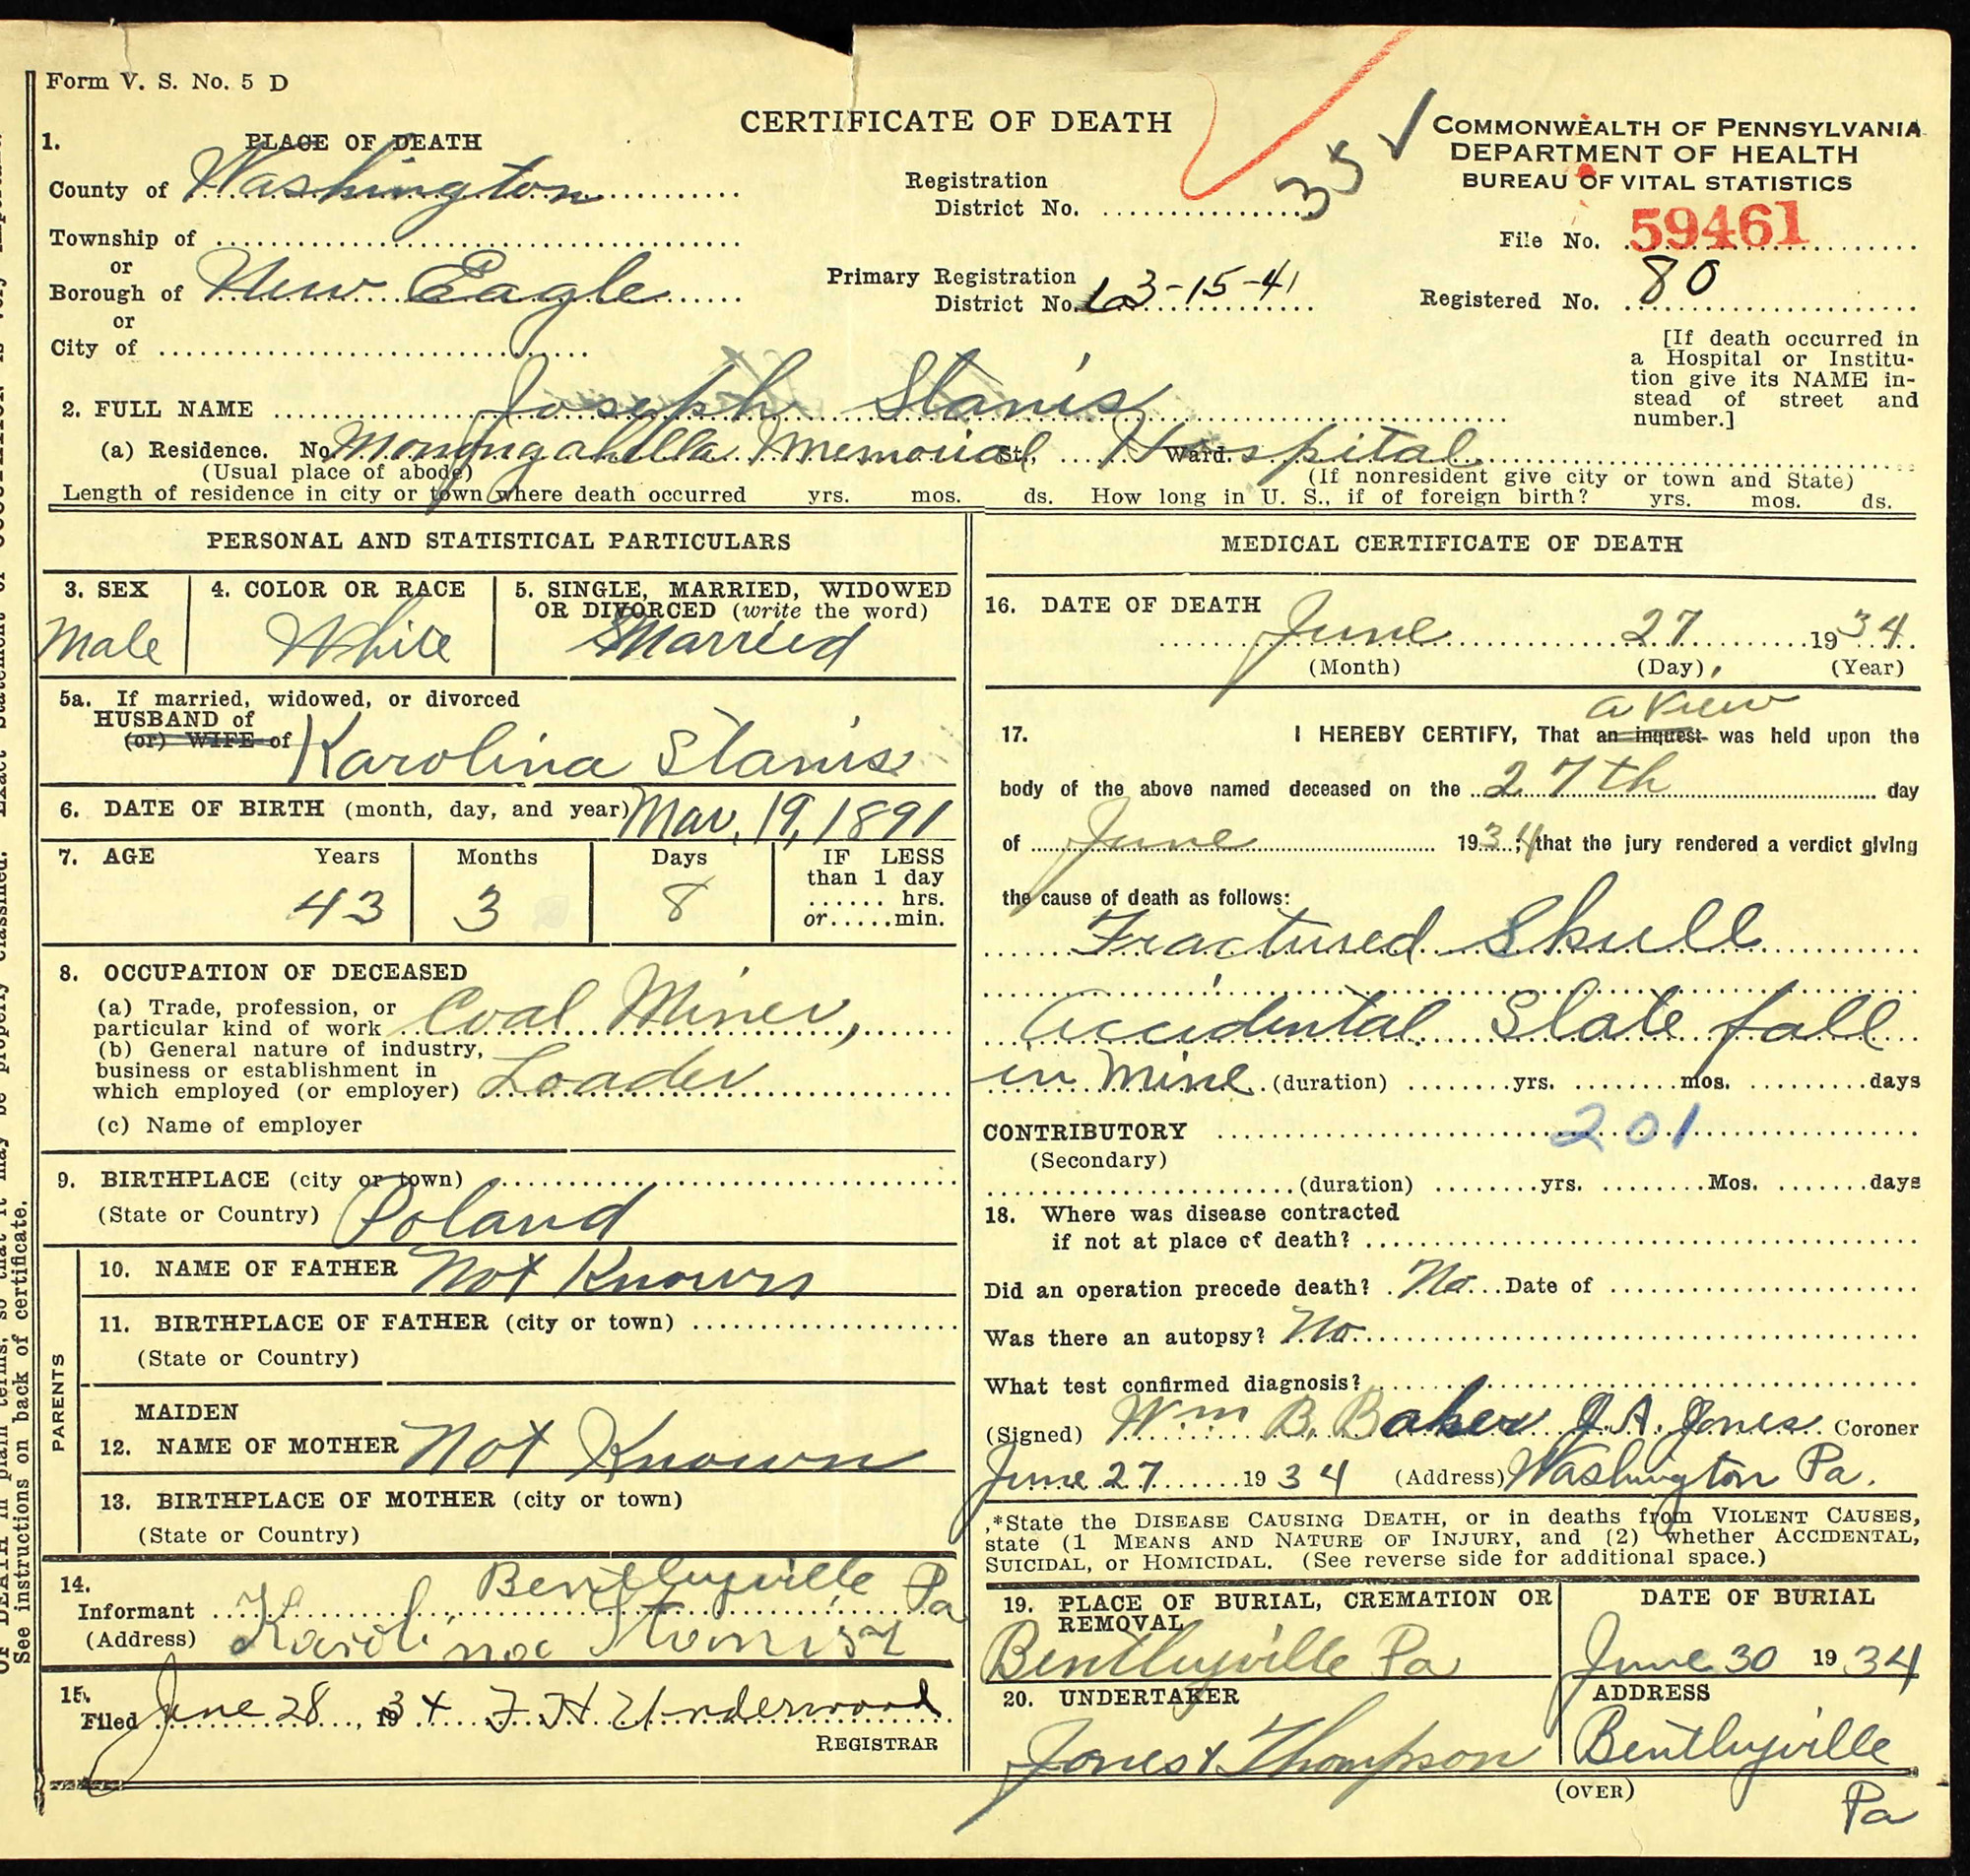 Form V. S. No. 5 D
CERTIFICATE OF DEATH
COMMONWEALTH OF PENNSYLVANIA
DEPARTMENT OF HEALTH
BUREAU OF VITAL STATISTICS
1. PLACE OF DEATH
County of Washington
Township of
or
Borough of New Eagle
or
City of
Registration
District No.
35
Primary Registration
District No. 63-15-41
File No. 59461
Registered No. 80
[If death occurred in
a Hospital or Institu-
tion give its NAME in-
stead of street and
number.]
2. FULL NAME Joseph Stanis
(a) Residence. No. Monongahella Memorial St., Hospital Ward.
(Usual place of abode) (If nonresident give city or town and State)
Length of residence in city or town where death occurred yrs. mos. ds. How long in U. S., if of foreign birth? yrs. mos. ds.
PERSONAL AND STATISTICAL PARTICULARS
3. SEX 4. COLOR OR RACE 5. SINGLE, MARRIED, WIDOWED
OR DIVORCED (write the word)
Male White Married
5a. If married, widowed, or divorced
HUSBAND of
(or) WIFE of Karolina Stanis
6. DATE OF BIRTH (month, day, and year) Mar. 19, 1891
7. AGE Years Months Days IF LESS
than 1 day
hrs.
or min.
43 3 8
8. OCCUPATION OF DECEASED
(a) Trade, profession, or
particular kind of work Coal Miner,
(b) General nature of industry,
business or establishment in
which employed (or employer) Loader
(c) Name of employer
9. BIRTHPLACE (city or town)
(State or Country) Poland
PARENTS
10. NAME OF FATHER Not Known
11. BIRTHPLACE OF FATHER (city or town)
(State or Country)
MAIDEN
12. NAME OF MOTHER Not Known
13. BIRTHPLACE OF MOTHER (city or town)
(State or Country)
14. Bentleyville Pa
Informant
(Address) Karolina
15. Filed June 28, 1934 F. H. Underwood
REGISTRAR
MEDICAL CERTIFICATE OF DEATH
16. DATE OF DEATH
June 27 1934
(Month) (Day), (Year)
a view
17. I HEREBY CERTIFY, That an inquest was held upon the
body of the above named deceased on the 27th day
of June 1934; that the jury rendered a verdict giving
the cause of death as follows:
Fractured Skull
Accidental Slate fall
in Mine (duration) yrs. mos. days
CONTRIBUTORY 201
(Secondary)
(duration) yrs. Mos. days
18. Where was disease contracted
if not at place of death?
Did an operation precede death? No Date of
Was there an autopsy? No
What test confirmed diagnosis?
(Signed) Wm B. Baker J. A. Jones Coroner
June 27 1934 (Address) Washington Pa.
*State the DISEASE CAUSING DEATH, or in deaths from VIOLENT CAUSES,
state (1 MEANS AND NATURE OF INJURY, and (2) whether ACCIDENTAL,
SUICIDAL, or HOMICIDAL. (See reverse side for additional space.)
19. PLACE OF BURIAL, CREMATION OR
REMOVAL
Bentleyville Pa
DATE OF BURIAL
June 30 1934
20. UNDERTAKER
Jones & Thompson
ADDRESS
Bentleyville
Pa
(OVER)
See instructions on back of certificate.